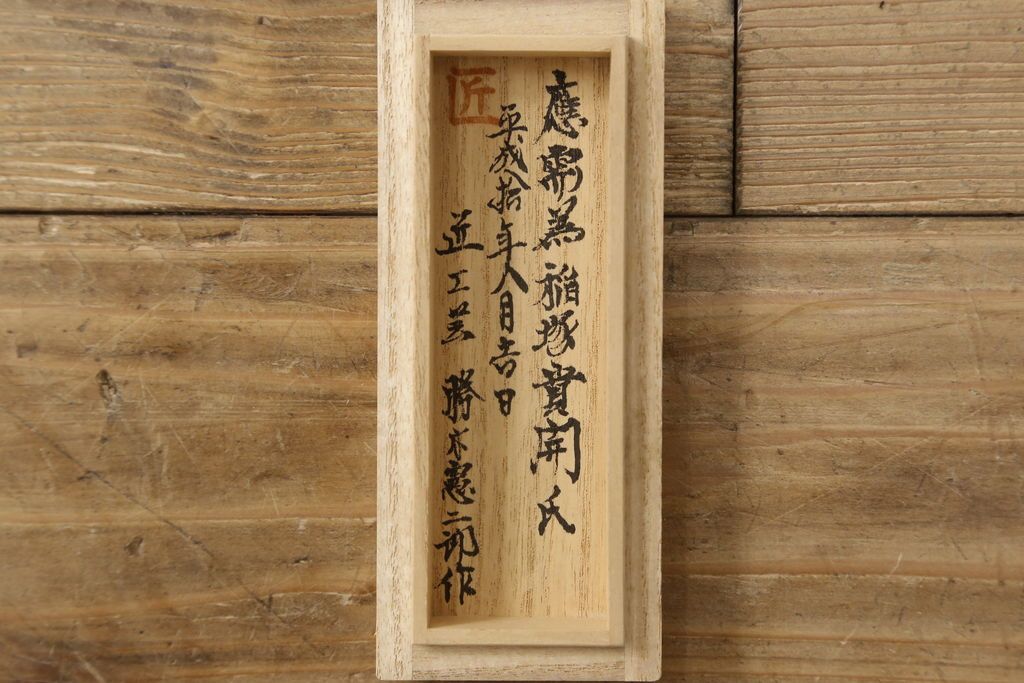 應需為稲塚實開氏
平成拾年八月吉日
匠
匠工芸 勝木憲二郎作